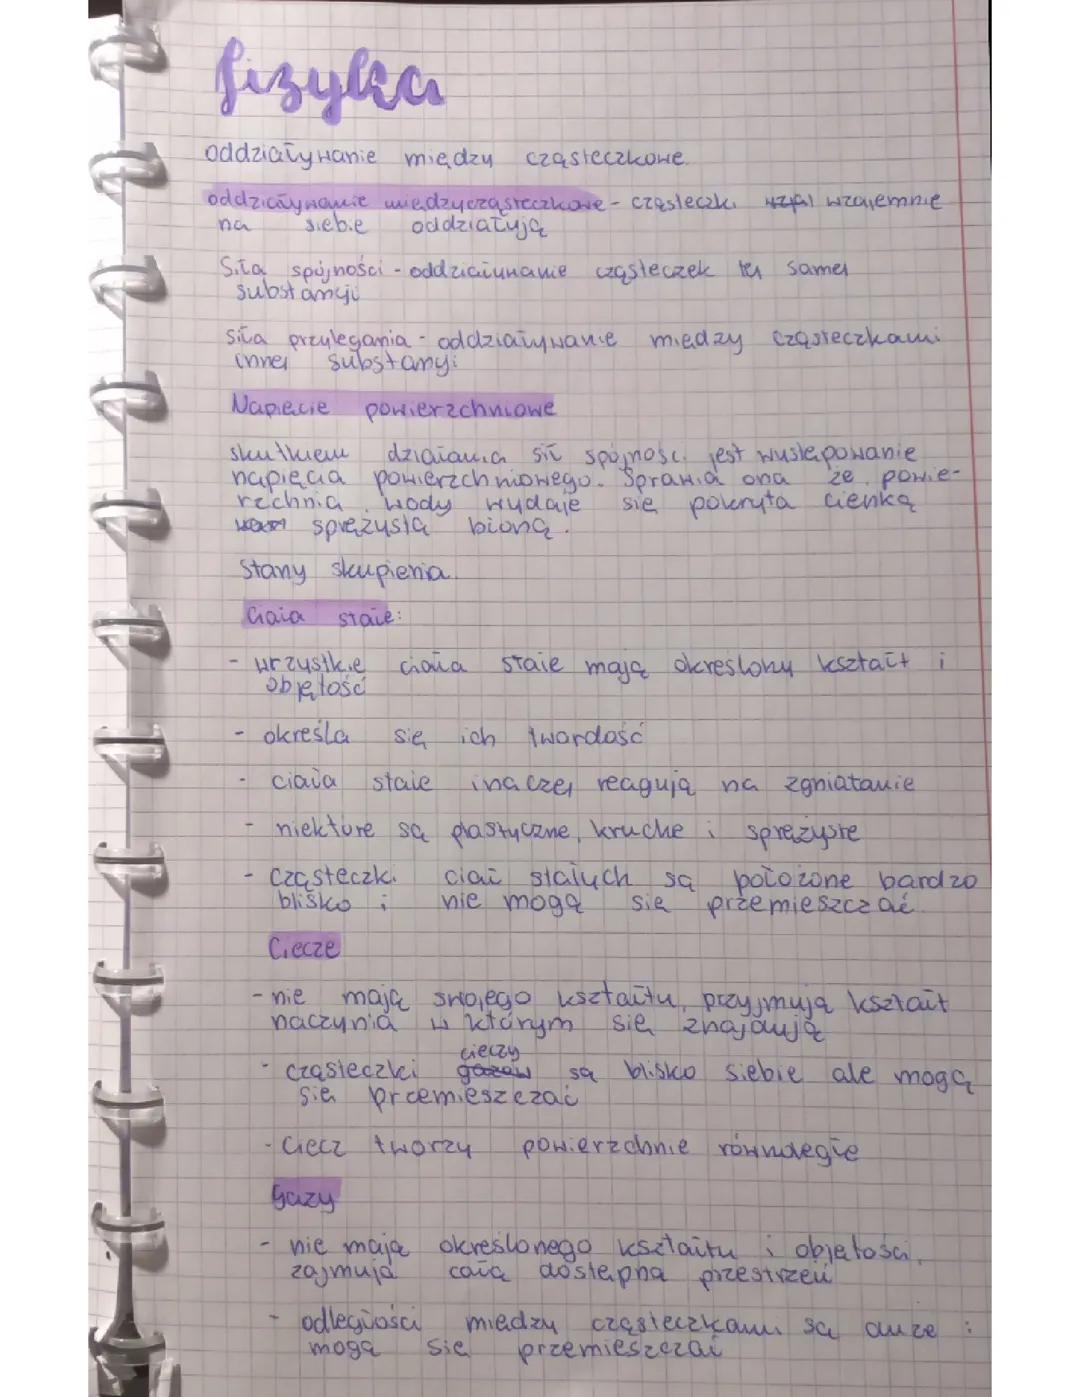 fizyka
oddziaływanie między cząsteczkowe.
oddziaływanie międzycząsteczkowe - cząsteczki wzajemnie
na siebie oddziałują
Siła spójności - oddziaływanie cząsteczek tej samej
substancji
siła przylegania - oddziaływanie między cząsteczkami
innej substancji
Napięcie powierzchniowe
skutkiem działania sił spójności jest występowanie
napięcia powierzchniowego. Sprawia ona że powie-
rzchnia wody wydaje się pokryta cienką
sprężystą błoną.
Stany skupienia.
Ciała stałe:
- wszystkie ciała stałe mają określony kształt i
objętość
- określa się ich twardość
- ciała stałe inaczej reagują na zgniatanie
- niektóre są plastyczne, kruche i sprężyste
- cząsteczki ciał stałych są położone bardzo
blisko i nie mogą się przemieszczać.
Ciecze
- nie mają swojego kształtu, przyjmują kształt
naczynia w którym się znajdują
cieczy
- cząsteczki gazów są blisko siebie ale mogą
się przemieszczać
- Ciecz tworzy powierzchnie równoległe
Gazy
- nie mają określonego kształtu i objętości,
zajmują całą dostępną przestrzeń
- odległości między cząsteczkami są duże i
mogą się przemieszczać